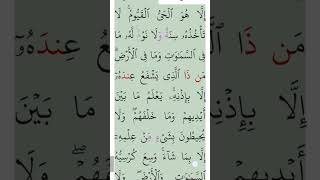 إِلَّا هُوَ ٱلْحَىُّ ٱلْقَيُّومُ ۚ لَا
تَأْخُذُهُۥ سِنَةٌ وَلَا نَوْمٌ ۚ لَّهُۥ مَا
فِى ٱلسَّمَٰوَٰتِ وَمَا فِى ٱلْأَرْضِ ۗ
مَن ذَا ٱلَّذِى يَشْفَعُ عِندَهُۥٓ
إِلَّا بِإِذْنِهِۦ ۚ يَعْلَمُ مَا بَيْنَ
أَيْدِيهِمْ وَمَا خَلْفَهُمْ ۖ وَلَا
يُحِيطُونَ بِشَىْءٍ مِّنْ عِلْمِهِۦٓ
إِلَّا بِمَا شَآءَ ۚ وَسِعَ كُرْسِيُّهُ
ٱلسَّمَٰوَٰتِ وَٱلْأَرْضَ ۖ وَلَا